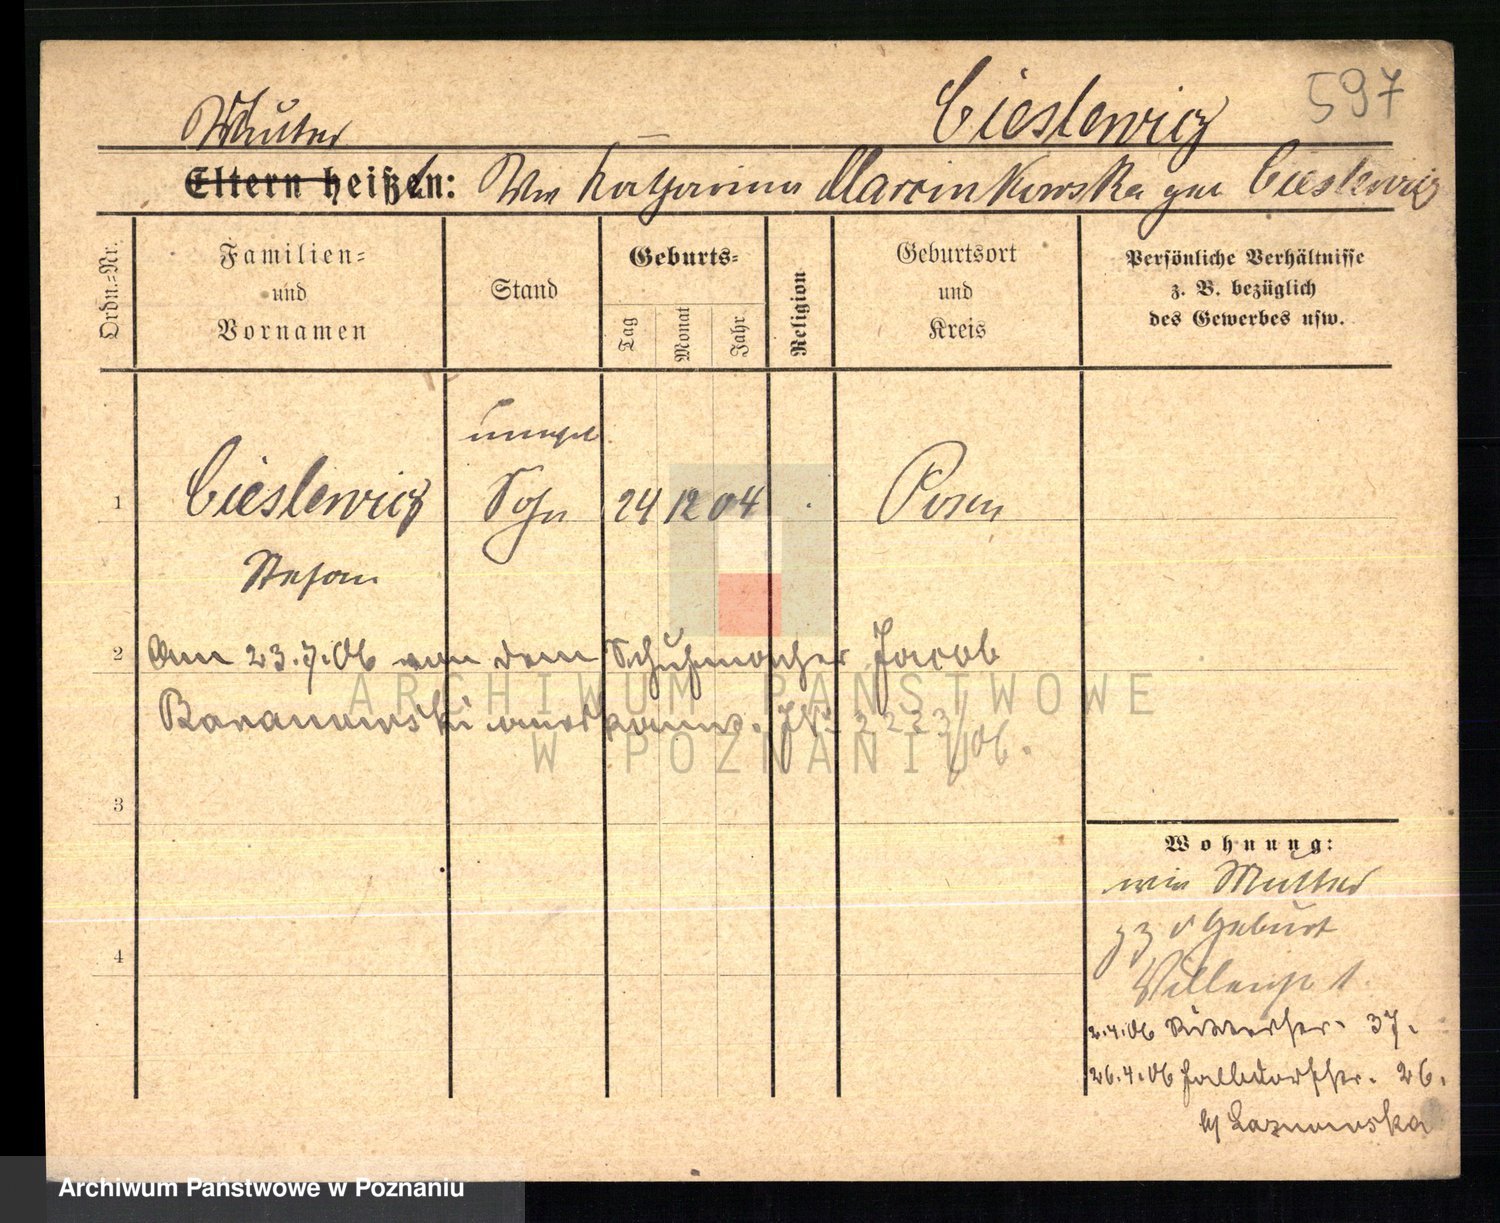 Cieslewicz 597
Mutter
Eltern heißen: Ww Katharina Marcinkowska geb Cieslewicz
Ordn.-Nr.
Familien-
und
Vornamen
Stand
Geburts-
Tag
Monat
Jahr
Religion
Geburtsort
und
Kreis
Persönliche Verhältnisse
z. B. bezüglich
des Gewerbes usw.
unehel
1 Cieslewicz Sohn 24 12 04 Posen
Stefan
2 Am 23.7.06 von dem Schuhmacher Jacob
Baranowski anerkannt. 2223/06.
3
4
Wohnung:
wie Mutter
z Z d Geburt
2.4.06 Ritterstr. 37.
26.4.06 Halbdorfstr. 26.
b/ Laznowska
ARCHIWUM PAŃSTWOWE
W POZNANIU
Archiwum Państwowe w Poznaniu